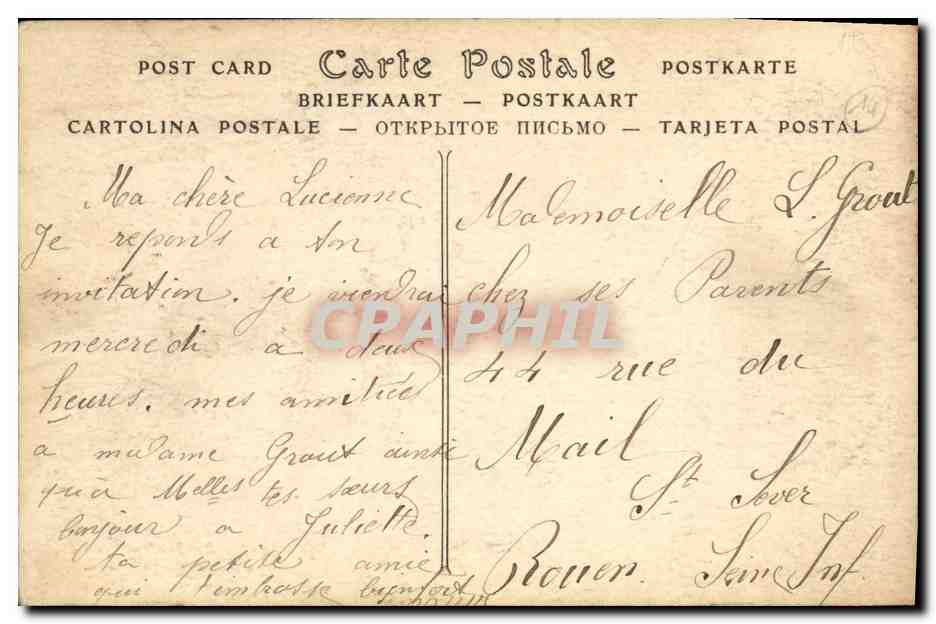 POST CARD Carte Postale POSTKARTE
BRIEFKAART — POSTKAART
CARTOLINA POSTALE — ОТКРЫТОЕ ПИСЬМО — TARJETA POSTAL
14
Ma chère Lucienne
Je reponds a ton
invitation. je viendrai
mercredi à deux
heures. mes amitiées
a madame Grout ainsi
qu'à Melles tes sœurs
bonjour a Juliette.
ta petite amie
qui t'embrasse bien fort
Mademoiselle L. Grout
chez ses Parents
44 rue du
Mail
St Sever
Rouen. Seine Inf.
CPAPHIL